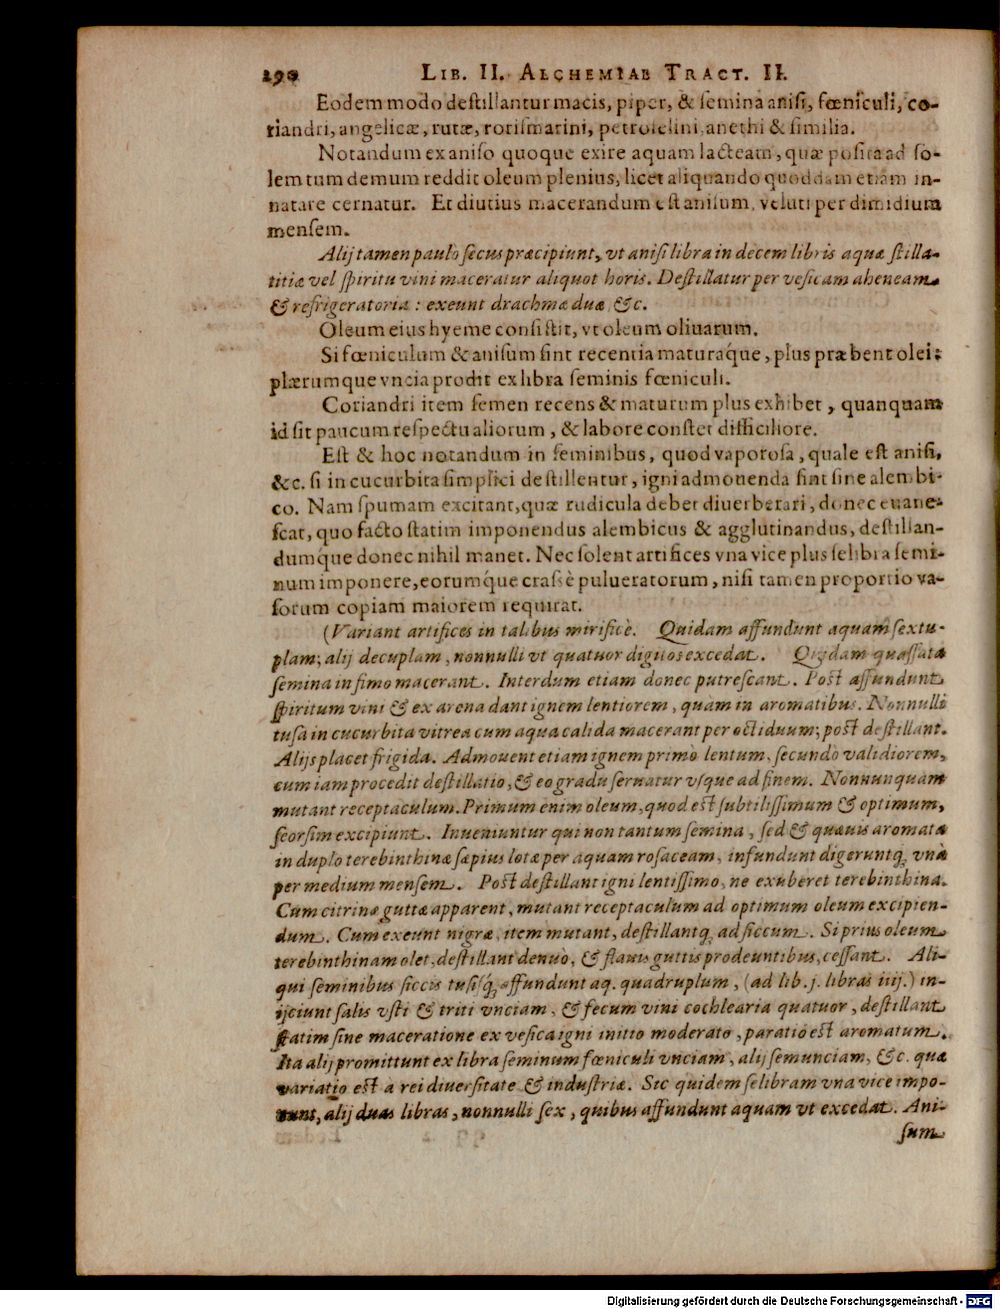 290 LIB. II. ALCHEMIAE TRACT. II.
Eodem modo destillantur macis, piper, & semina anisi, fœniculi, co-
riandri, angelicæ, rutæ, rorismarini, petroselini, anethi & similia.
Notandum ex aniso quoque exire aquam lacteam, quæ posita ad so-
lem tum demum reddit oleum plenius, licet aliquando quoddam etiam in-
natare cernatur. Et diutius macerandum est anisum, veluti per dimidium
mensem.
Alij tamen paulò secus præcipiunt, vt anisi libra in decem libris aquæ stilla-
titiæ vel spiritu vini maceratur aliquot horis. Destillatur per vesicam aheneam
& refrigeratoria : exeunt drachmæ duæ, &c.
Oleum eius hyeme consistit, vt oleum oliuarum.
Si fœniculum & anisum sint recentia maturaq́ue, plus præbent olei:
plærumque vncia prodit ex libra seminis fœniculi.
Coriandri item semen recens & maturum plus exhibet, quanquam
id sit paucum respectu aliorum, & labore constet difficiliore.
Est & hoc notandum in seminibus, quod vaporosa, quale est anisi,
&c. si in cucurbita simplici destillentur, igni admouenda sint sine alembi-
co. Nam spumam excitant, quæ rudicula debet diuerberari, donec euane-
scat, quo facto statim imponendus alembicus & agglutinandus, destillan-
dumq́ue donec nihil manet. Nec solent artifices vna vice plus selibra semi-
num imponere, eorumq́ue crassè pulueratorum, nisi tamen proportio va-
sorum copiam maiorem requirat.
(Variant artifices in talibus mirificè. Quidam affundunt aquam sextu-
plam; alij decuplam, nonnulli vt quatuor digitos excedat. Quidam quassata
semina in fimo macerant. Interdum etiam donec putrescant. Post affundunt
spiritum vini & ex arena dant ignem lentiorem, quàm in aromatibus. Nonnulli
tusa in cucurbita vitrea cum aqua calida macerant per octiduum; post destillant.
Alijs placet frigida. Admouent etiam ignem primò lentum, secundò validiorem,
cum iam procedit destillatio, & eo gradu seruatur vsque ad finem. Nonnunquam
mutant receptaculum. Primum enim oleum, quod est subtilissimum & optimum,
seorsim excipiunt. Inueniuntur qui non tantum semina, sed & quæuis aromata
in duplo terebinthinæ sæpius lotæ per aquam rosaceam, infundunt digeruntq́; vnà
per medium mensem. Post destillant igni lentissimo, ne exuberet terebinthina.
Cum citrinæ guttæ apparent, mutant receptaculum ad optimum oleum excipien-
dum. Cum exeunt nigræ, item mutant, destillantq́; ad siccum. Si prius oleum
terebinthinam olet, destillant denuò, & flauis guttis prodeuntibus, cessant. Ali-
qui seminibus siccis tusisq́; affundunt aq. quadruplum, (ad lib. j. libras iiij.) in-
ijciunt salis vsti & triti vnciam, & fecum vini cochlearia quatuor, destillant
statim sine maceratione ex vesica igni initio moderato, paratio est aromatum.
Ita alij promittunt ex libra seminum fœniculi vnciam, alij semunciam, &c. quæ
variatio est a rei diuersitate & industriæ. Sic quidem selibram vna vice impo-
nunt, alij duas libras, nonnulli sex, quibus affundunt aquam vt excedat. Ani-
sum
Digitalisierung gefördert durch die Deutsche Forschungsgemeinschaft - DFG